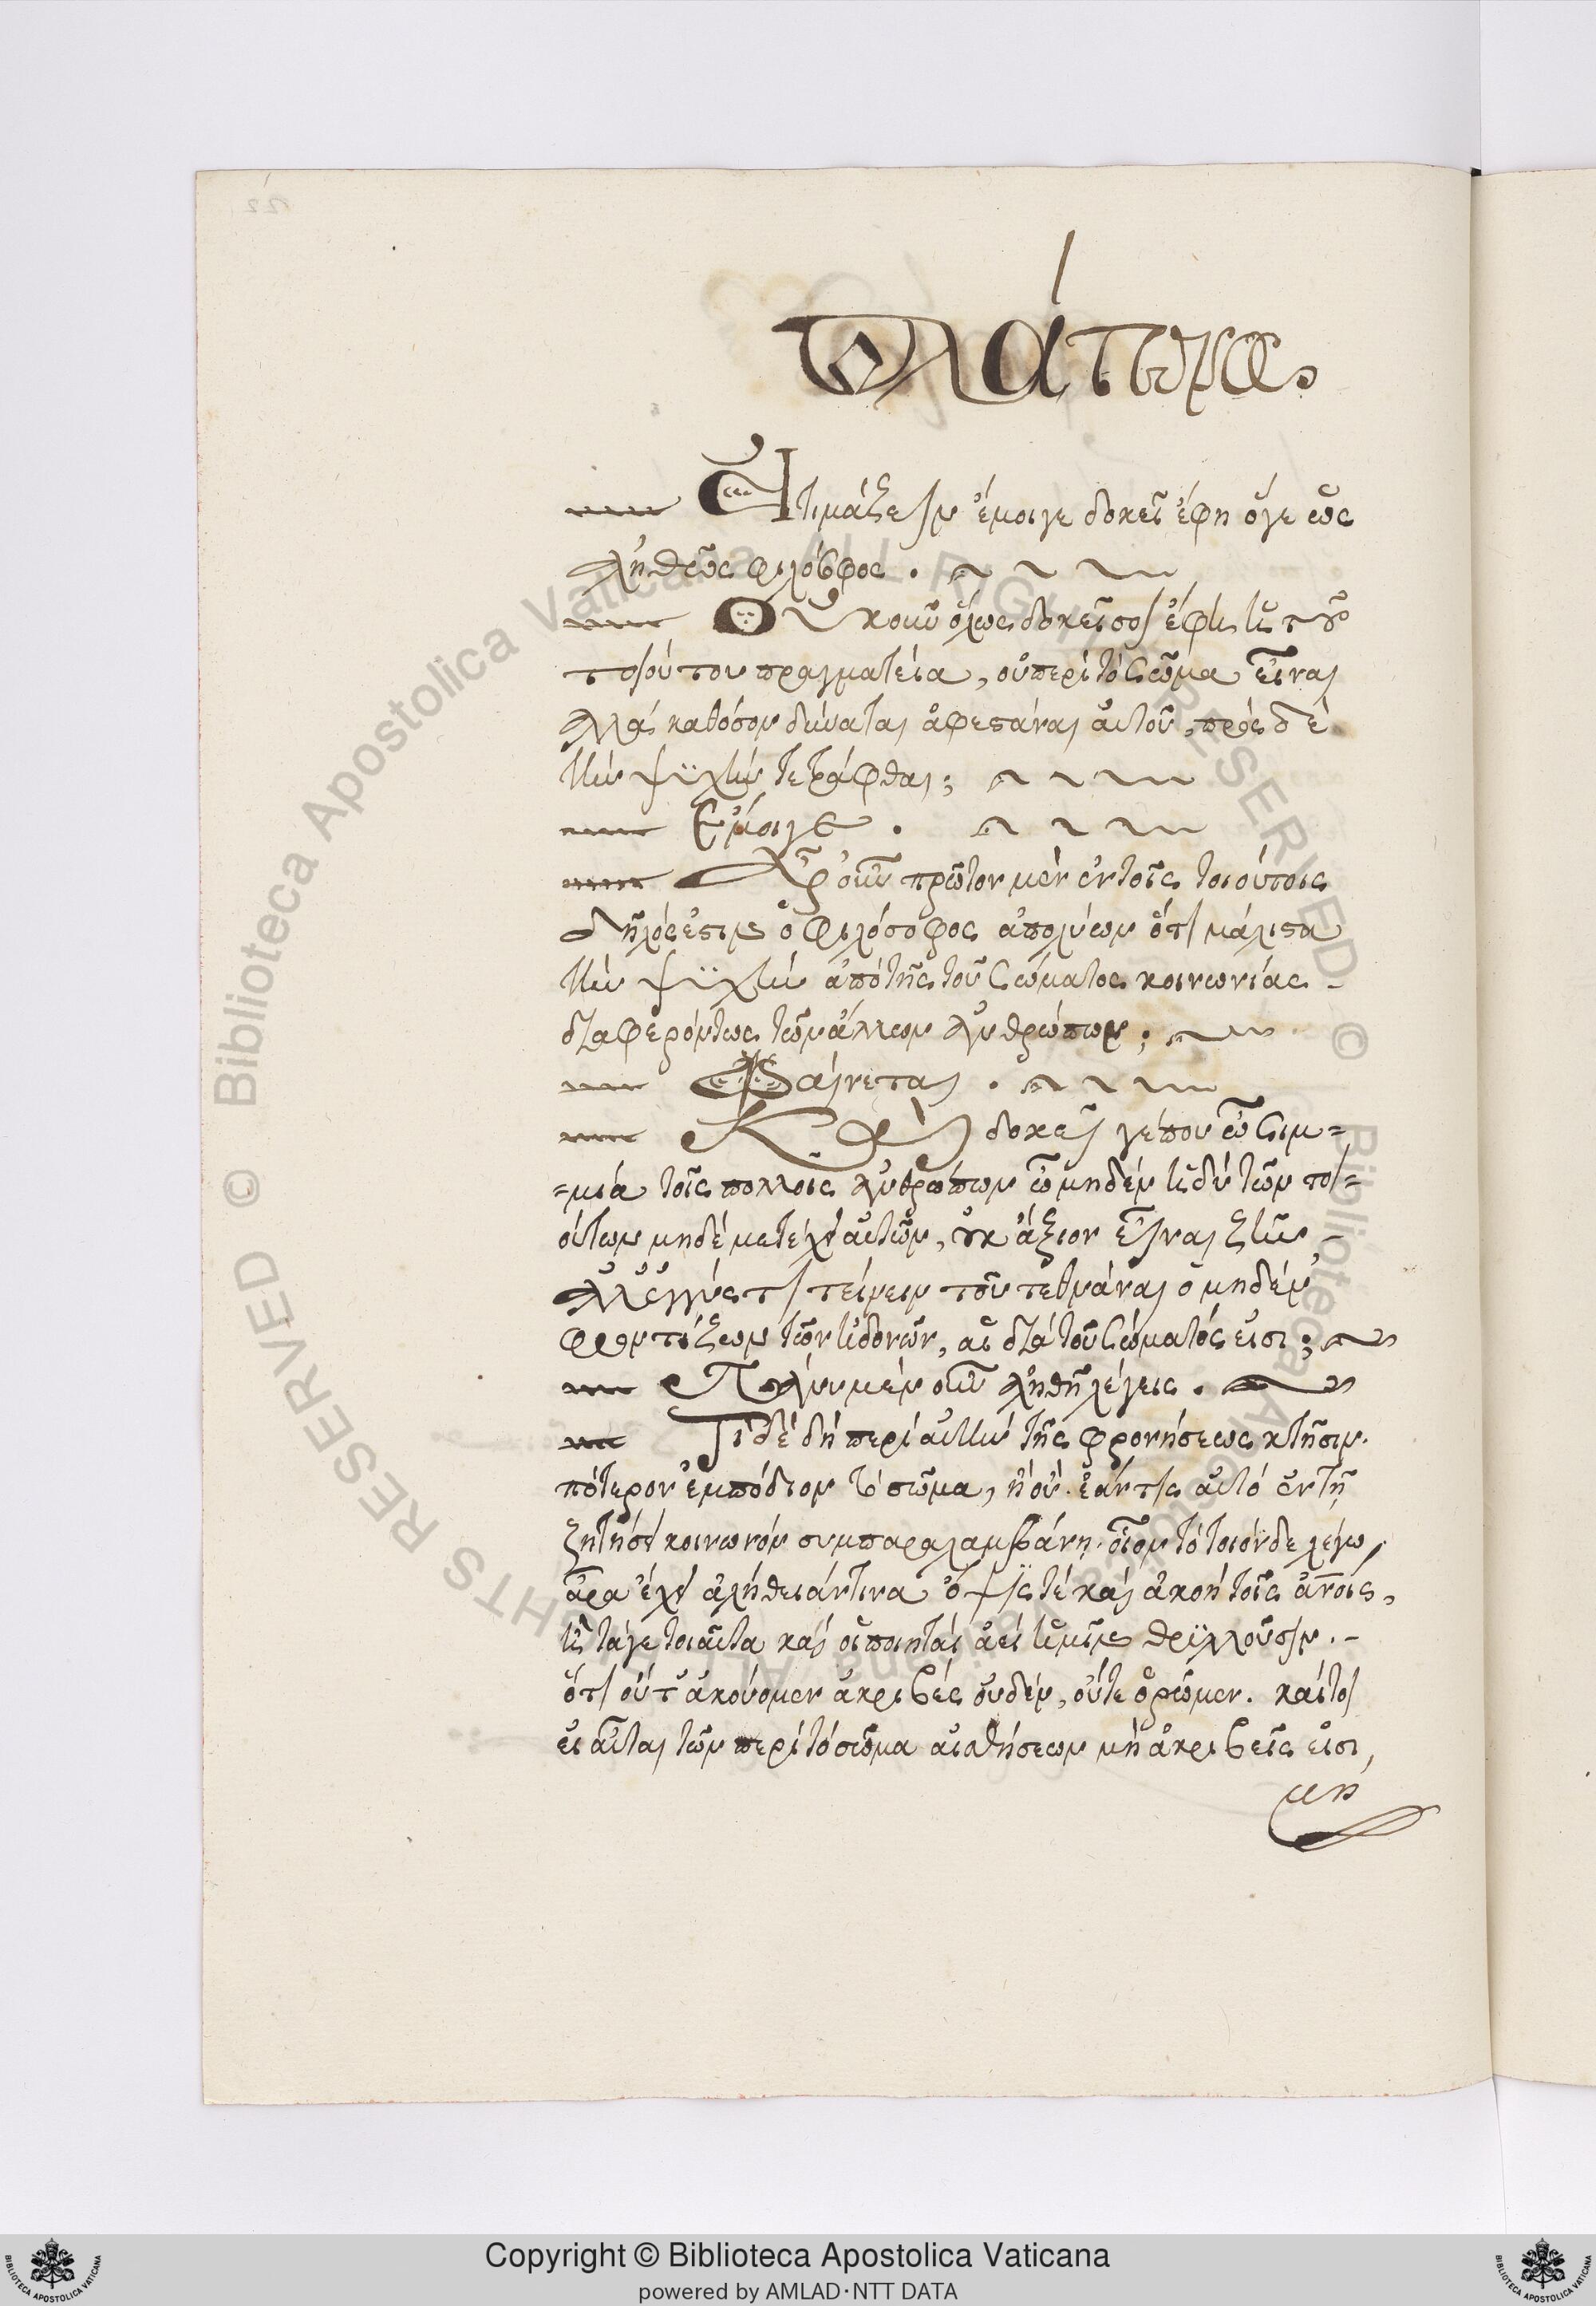 Πλάτωνος
Ἀτιμάζειν ἔμοιγε δοκεῖ ἔφη ὅγε ὡς
ἀληθῶς φιλόσοφος.
Οὐκοῦν ὅλως δοκεῖ σοι ἔφη ἡ τοῦ
τοιούτου πραγματεία, οὐ περὶ τὸ σῶμα εἶναι
ἀλλὰ καθόσον δύναται ἀφεστάναι αὐτοῦ, πρὸς δὲ
τὴν ψϋχὴν τετράφθαι;
Ἔμοιγε.
Ἆρ' οὖν πρῶτον μὲν ἐν τοῖς τοιούτοις
δῆλός ἐστιν ὁ φιλόσοφος ἀπολύων ὅτι μάλιστα
τὴν ψϋχὴν ἀπὸ τῆς τοῦ σώματος κοινωνίας
διαφερόντως τῶν ἄλλων ἀνθρώπων;
Φαίνεται.
Καὶ δοκεῖ γέ που ὦ Σιμ=
=μία τοῖς πολλοῖς ἀνθρώπων ᾧ μηδὲν ἡδὺ τῶν τοι=
ούτων μηδὲ μετέχει αὐτῶν, οὐκ ἄξιον εἶναι ζῆν
ἀλλ' ἐγγύς τι τείνειν τοῦ τεθνάναι ὁ μηδὲν
φροντίζων τῶν ἡδονῶν, αἳ διὰ τοῦ σώματός εἰσι;
Πάνυ μὲν οὖν ἀληθῆ λέγεις.
Τί δὲ δὴ περὶ αὐτὴν τῆς φρονήσεως κτῆσιν.
πότερον ἐμπόδιον τὸ σῶμα, ἢ οὔ. ἐάν τις αὐτὸ ἐν τῇ
ζητήσει κοινωνὸν συμπαραλαμβάνῃ. οἷον τὸ τοιόνδε λέγω,
ἆρα ἔχει ἀλήθειάν τινα ὄψϊς τὲ καὶ ἀκοὴ τοῖς ἀν̅οις,
ἢ τά γε τοιαῦτα καὶ οἱ ποιηταὶ ἀεὶ ἡμῖν θρϋλλοῦσιν.
ὅτι οὔτ' ἀκούομεν ἀκριβὲς οὐδὲν, οὔτε ὁρῶμεν. καίτοι
εἰ αὗται τῶν περὶ τὸ σῶμα αἰσθήσεων μὴ ἀκριβεῖς εἰσι,
μη
Copyright © Biblioteca Apostolica Vaticana
powered by AMLAD·NTT DATA
© Biblioteca Apostolica Vaticana ALL RIGHTS RESERVED ©
BIBLIOTECA APOSTOLICA VATICANA
BIBLIOTECA APOSTOLICA VATICANA